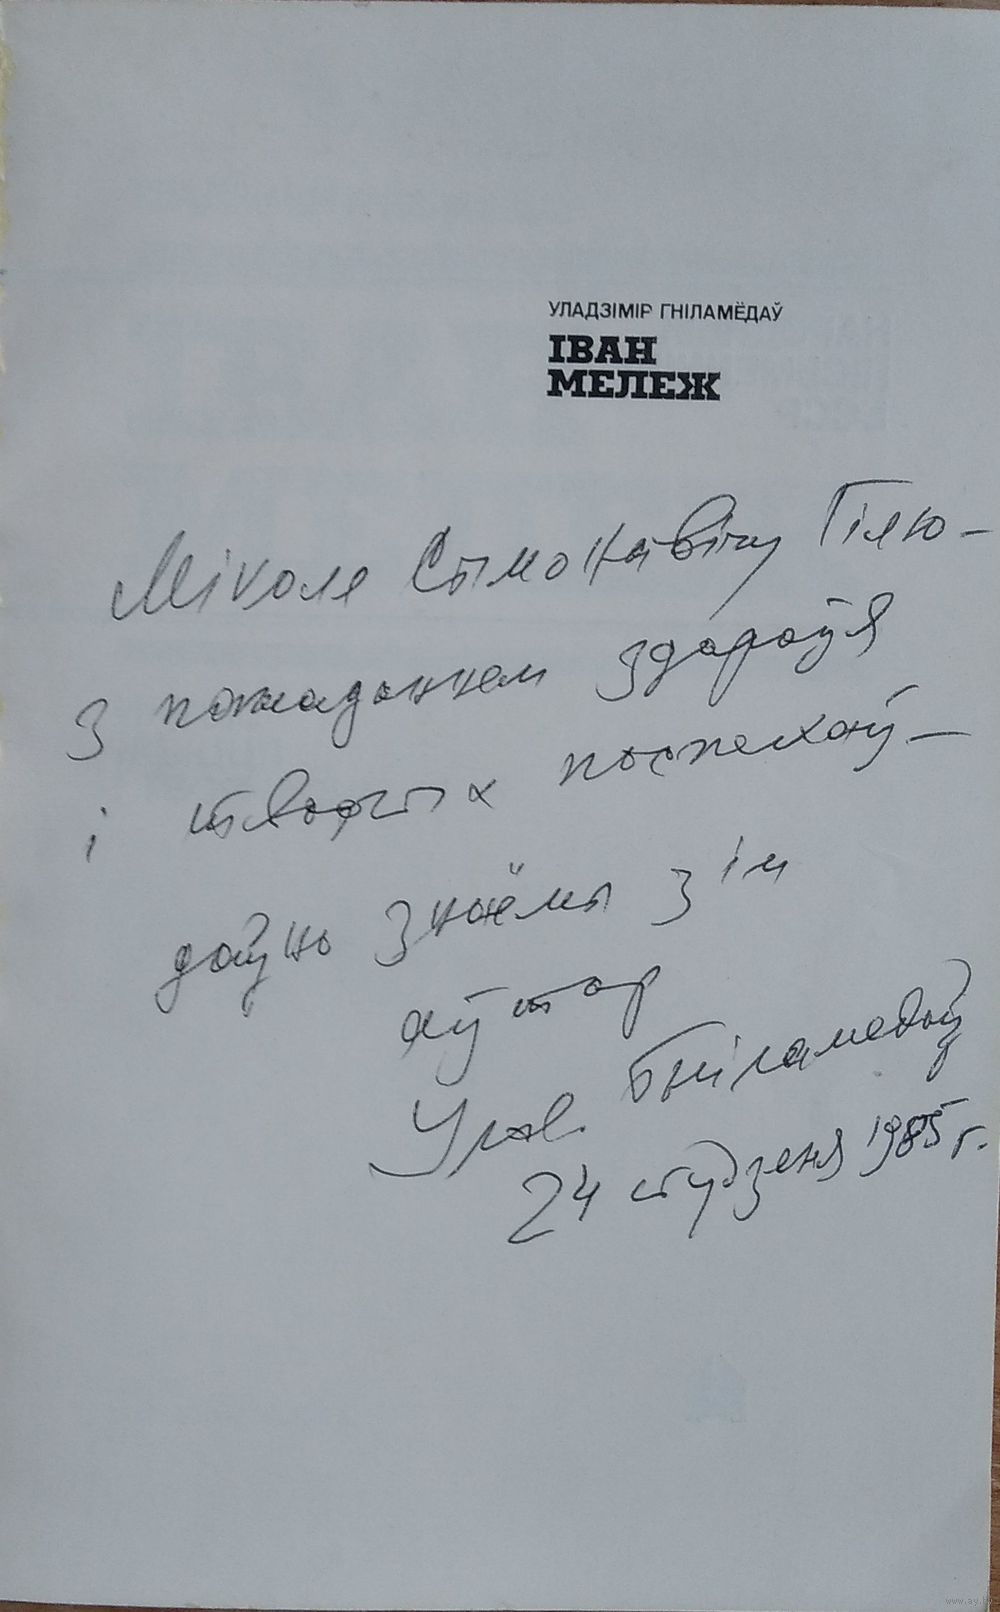 УЛАДЗІМІР ГНІЛАМЁДАЎ
ІВАН
МЕЛЕЖ
Міколе Сымонавічу Гілю —
з пажаданнем здароўя
і творчых поспехаў —
даўно знаёмы з ім
аўтар
Улад. Гніламедаў
24 студзеня 1985 г.
www.ay.by